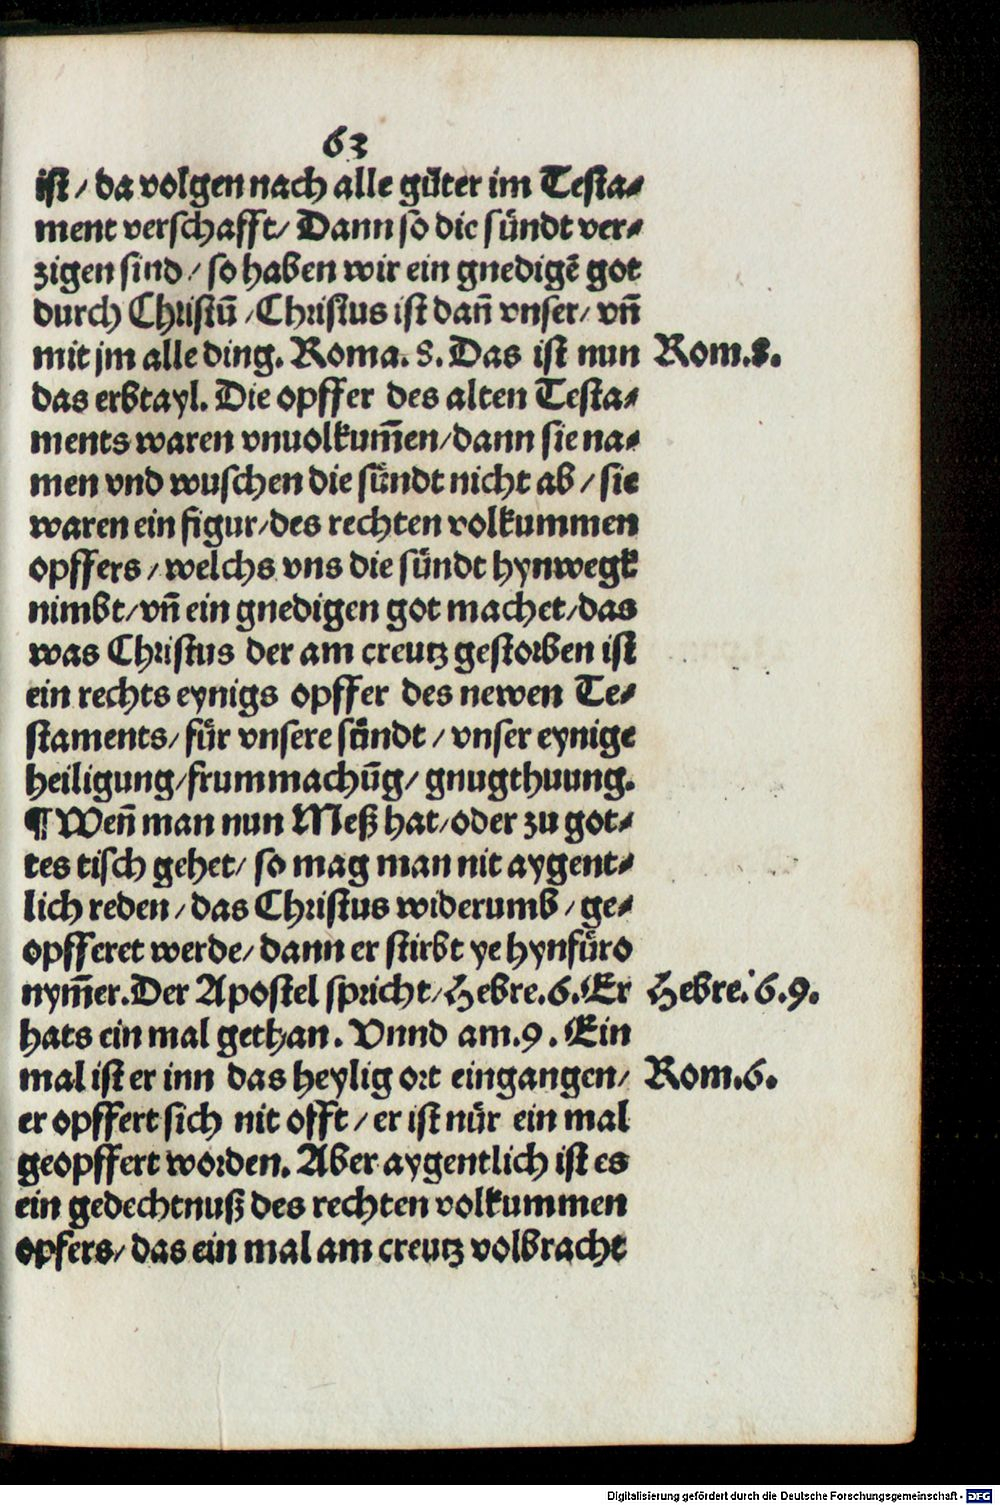 63
ist / da volgen nach alle güter im Testa⸗
ment verschafft / Dann so die sündt ver⸗
zigen sind / so haben wir ein gnedigē got
durch Christū / Christus ist dan̄ vnser / vn̄
mit jm alle ding. Roma. 8. Das ist nun
Rom.8.
das erbtayl. Die opffer des alten Testa⸗
ments waren vnuolkum̄en / dann sie na⸗
men vnd wuschen die sündt nicht ab / sie
waren ein figur / des rechten volkummen
opffers / welchs vns die sündt hynwegk
nimbt / vn̄ ein gnedigen got machet / das
was Christus der am creutz gestorben ist
ein rechts eynigs opffer des newen Te⸗
staments / für vnsere sündt / vnser eynige
heiligung / frummachūg / gnugthuung.
¶ Wen̄ man nun Meß hat / oder zu got⸗
tes tisch gehet / so mag man nit aygent⸗
lich reden / das Christus widerumb / ge⸗
opfferet werde / dann er stirbt ye hynfüro
nym̄er. Der Apostel spricht / Hebre. 6. Er
Hebre. 6.9.
hats ein mal gethan. Vnnd am. 9. Ein
mal ist er inn das heylig ort eingangen /
Rom.6.
er opffert sich nit offt / er ist nür ein mal
geopffert worden. Aber aygentlich ist es
ein gedechtnuß des rechten volkummen
opfers / das ein mal am creutz volbracht
Digitalisierung gefördert durch die Deutsche Forschungsgemeinschaft - DFG